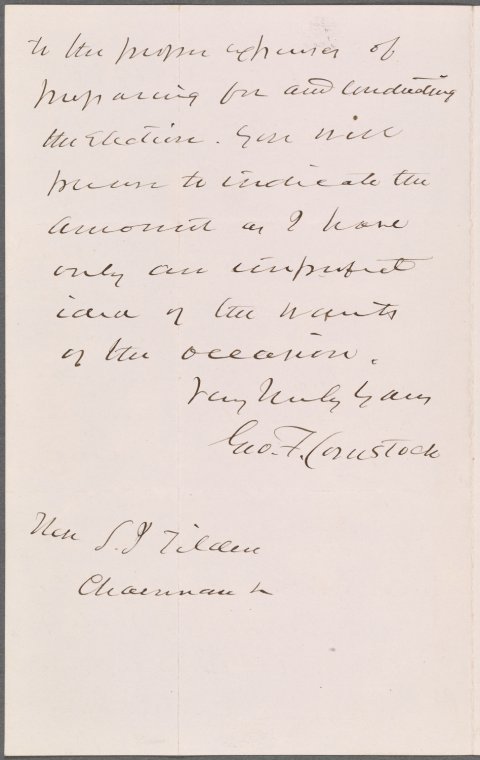 to the proper expenses of
preparing for and conducting
the Election. You will
please to indicate the
amount as I have
only an imperfect
idea of the wants
of the occasion.
Very truly yours
Geo. F. Comstock
Hon S. J Tilden
Chairman &c